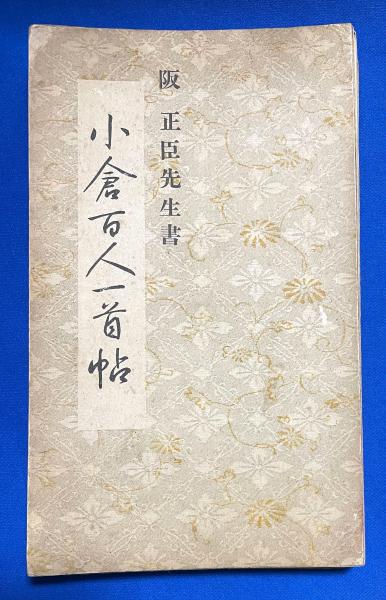 阪 正臣先生書
小倉百人一首帖